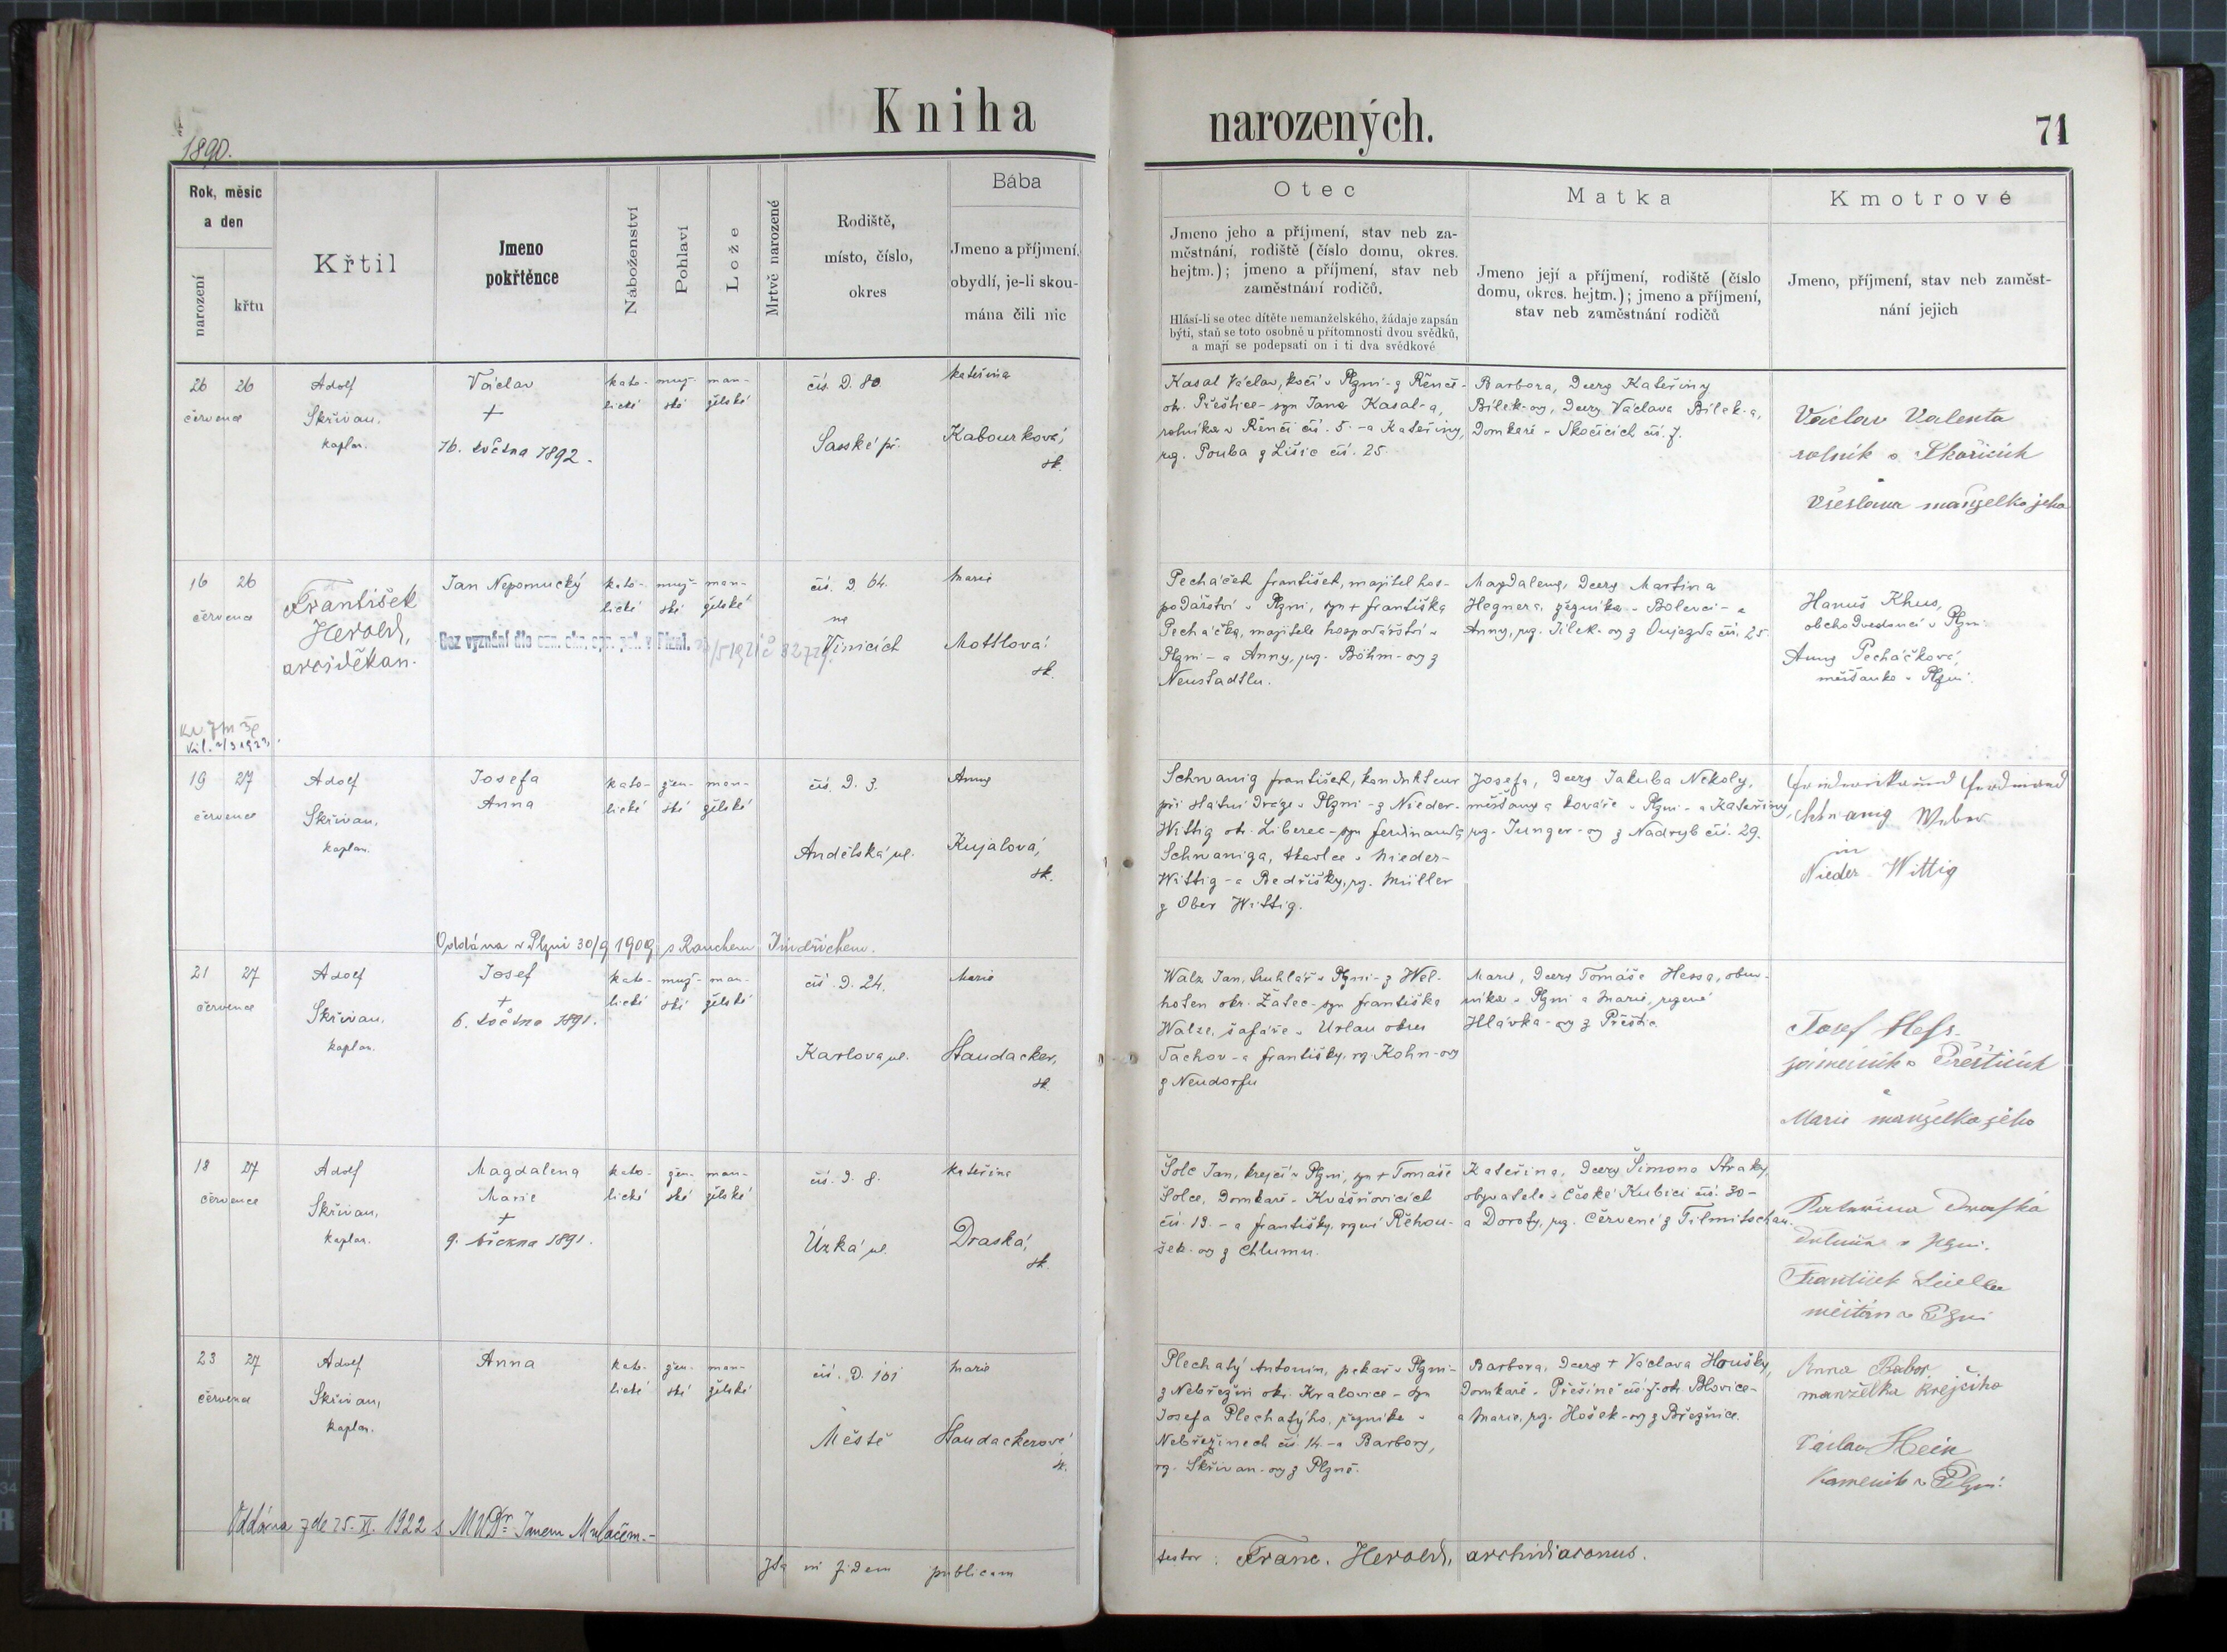 Kniha
narozených.
71
1890.
Rok, měsíc
a den
narození
křtu
Křtil
Jmeno
pokřtěnce
Náboženství
Pohlaví
Lože
Mrtvě narozené
Rodiště,
místo, číslo,
okres
Bába
Jmeno a příjmení,
obydlí, je-li skou-
mána čili nic
Otec
Jmeno jeho a příjmení, stav neb za-
městnání, rodiště (číslo domu, okres.
hejtm.); jmeno a příjmení, stav neb
zaměstnání rodičů.
Hlásí-li se otec dítěte nemanželského, žádaje zapsán
býti, staň se toto osobně u přítomnosti dvou svědků,
a mají se podepsati on i ti dva svědkové
Matka
Jmeno její a příjmení, rodiště (číslo
domu, okres. hejtm.); jmeno a příjmení,
stav neb zaměstnání rodičů
Kmotrové
Jmeno, příjmení, stav neb zaměst-
nání jejich
26 26
července
Adolf
Skřivan,
kaplan.
Václav
+
16. května 1892.
kato-
lické
muž-
ské
man-
želské
čís. D. 80
Saské př.
Kateřina
Kabourková,
sk.
Kasal Václav, kočí v Plzni - z Řenče
ok. Přeštice - syn Jana Kasal-a,
rolníka v Řenči čís. 5. - a Kateřiny,
roz. Pouba z Lišic čís. 25.
Barbora, dcera Kateřiny
Bílek-ovy, dcery Václava Bílek-a,
domkáře v Skočicích čís. 7.
Václav Valenta
rolník v Skočicích
a
manželka jeho
16 26
července
František
Herold,
arciděkan.
Jan Nepomucký
Bez vyznání dle
kato-
lické
muž-
ské
man-
želské
čís. D. 64.
na
Vinicích
Marie
Mottlová
sk.
Pecháček František, majitel hos-
podářství v Plzni, syn + Františka
Pecháčka, majitele hospodářství v
Plzni - a Anny, roz. Böhm-ovy z
Neustadtlu.
Magdalena, dcera Martina
Hegnera, řezníka v Bolevci - a
Anny, roz. Jílek-ovy z Oujezda čís. 25.
Hanuš Khus,
obchodvedoucí v Plzni
Anna Pecháčková,
měšťanka v Plzni.
19 27
července
Adolf
Skřivan,
kaplan.
Josefa
Anna
kato-
lické
žen-
ské
man-
želské
čís. D. 3.
Andělská ul.
Anna
Kujalová,
sk.
Schwanig František, kondukteur
při státní dráze v Plzni - z Nieder-
Wittig ok. Liberec - syn Ferdinanda
Schwaniga, tkalce v Nieder-
Wittig - a Bedřišky, roz. Müller
z Ober Wittig.
Josefa, dcera Jakuba Nekoly,
měšťana a kováře v Plzni - a Kateřiny,
roz. Junger-ovy z Nadryb čís. 29.
Schwanig Weber
in
Nieder-Wittig
Oddána v Plzni 30/9 1909 s Rauchem Jindřichem.
21 27
července
Adolf
Skřivan,
kaplan.
Josef
+
6. května 1891.
kato-
lické
muž-
ské
man-
želské
čís. D. 24.
Karlova ul.
Marie
Haudacker,
sk.
Walz Jan, truhlář v Plzni - z Wel-
hoten okr. Žatec - syn Františka
Walze, šafáře v Urlau okres
Tachov - a Františky, roz. Kohn-ovy
z Neudorfu
Marie, dcera Tomáše Hessa, obuv-
níka v Plzni a Marie, rozené
Hlávka-ovy z Přeštic
Josef Hess
zámečník v Přešticích
a
Marie manželka jeho
18 27
července
Adolf
Skřivan,
kaplan.
Magdalena
Marie
+
9. března 1891.
kato-
lické
žen-
ské
man-
želské
čís. D. 8.
Úzká ul.
Kateřina
Draská,
sk.
Šolc Jan, krejčí v Plzni, syn + Tomáše
Šolce, domkáře v Kvášňovicích
čís. 19. - a Františky, rozené Řehou-
šek-ovy z Chlumu.
Kateřina, dcera Šimona Straky,
obyvatele v České Kubici čís. 30 -
a Doroty, roz. Červené z Filmitschau.
Kateřina Draská
v Plzni.
František
měšťan v Plzni
23 27
července
Adolf
Skřivan,
kaplan.
Anna
kato-
lické
žen-
ské
man-
želské
čís. D. 101
Městě
Marie
Haudackerová
sk.
Plechatý Antonín, pekař v Plzni -
z Nebřezin okr. Kralovice - syn
Josefa Plechatýho, řezníka v
Nebřezinech čís. 14. - a Barbory,
roz. Skřivan-ovy z Plzně.
Barbora, dcera + Václava Houšky,
domkáře v Přešíně čís. 7. ok. Blovice -
a Marie, roz. Hošek-ovy z Březnice.
Anna Babor
manželka krejčího
Václav Hein
kameník v Plzni.
Oddána zde 25. XI. 1922 s MUDr. Janem
Ita in fidem publicam
testor: Franc. Herold, archidiaconus.